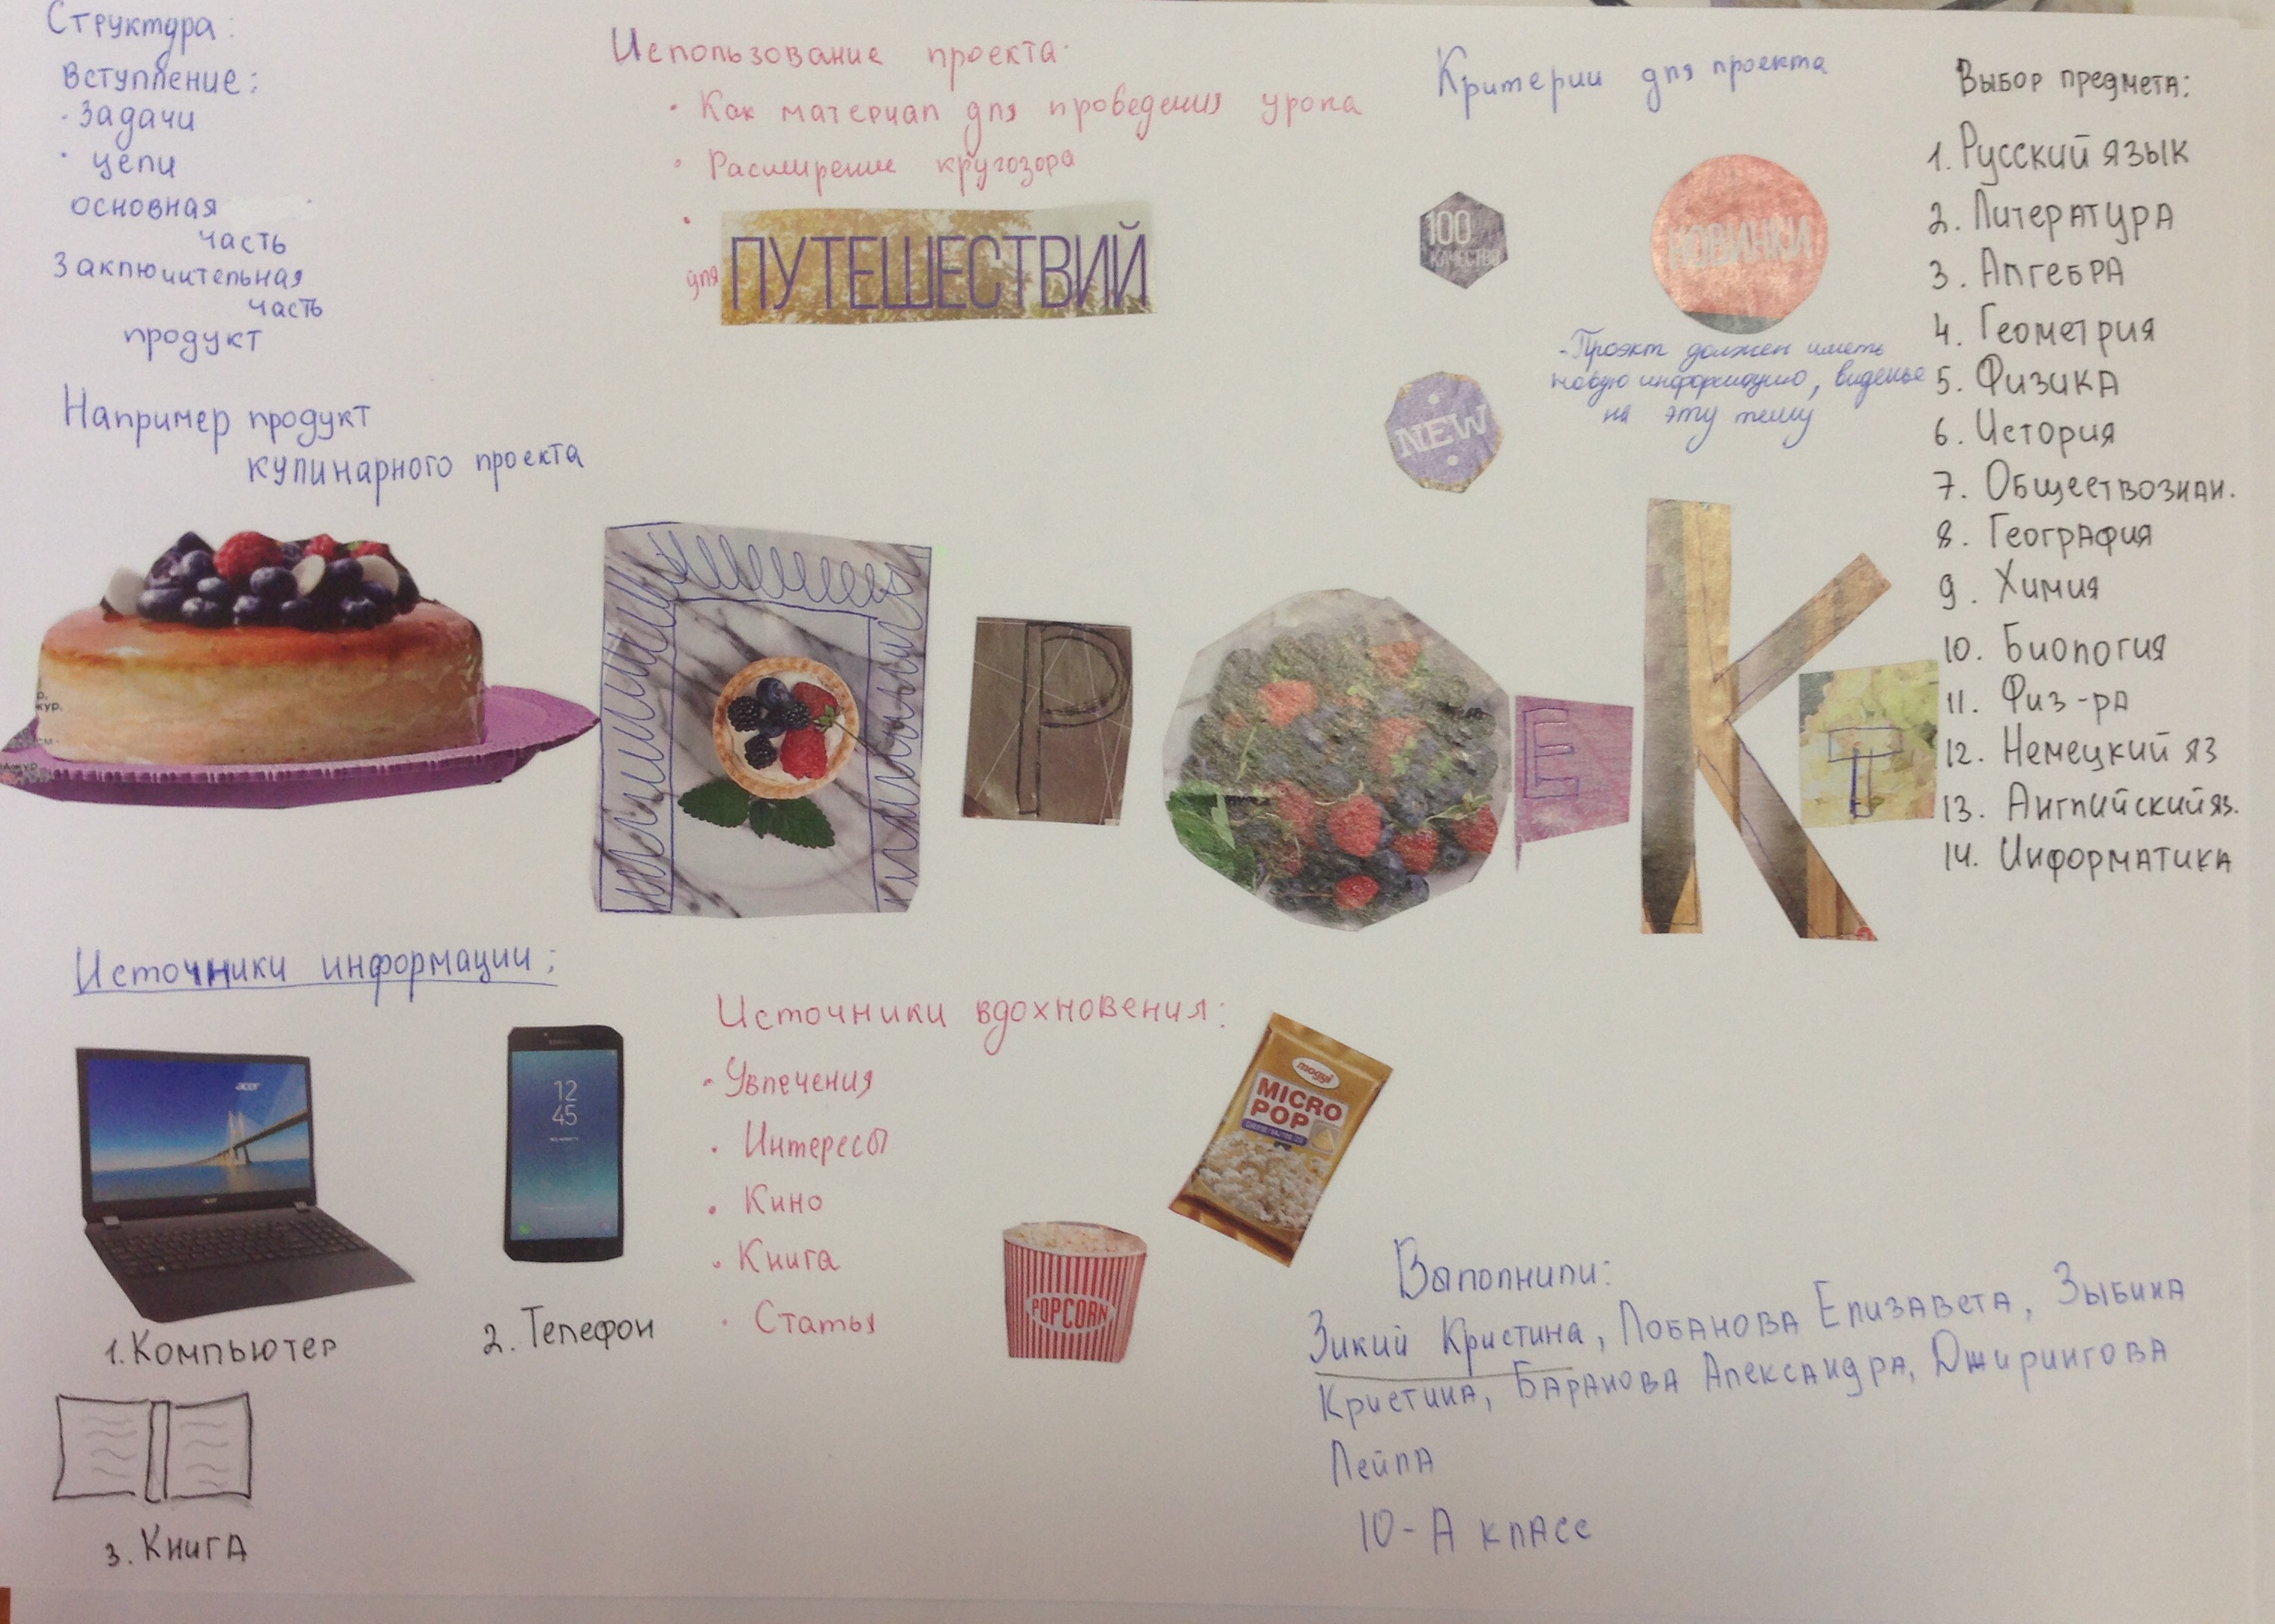 Структура:
Вступление:
· Задачи
· цели
основная
часть
Заключительная
часть
продукт
Например продукт
кулинарного проекта
Использование проекта:
· Как материал для проведения урока
· Расширение кругозора
·
для ПУТЕШЕСТВИЙ
Критерии для проекта
100
КАЧЕСТВО
НОВИНКИ
NEW
-Проэкт должен иметь
новую информацию, виденье
на эту тему
Выбор предмета:
1. Русский язык
2. Литература
3. Алгебра
4. Геометрия
5. Физика
6. История
7. Обществознан.
8. География
9. Химия
10. Биология
11. Физ-ра
12. Немецкий яз
13. Английский яз.
14. Информатика
П Р О Е К Т
Источники информации:
acer
acer
1. Компьютер
SAMSUNG
12
45
2. Телефон
3. Книга
Источники вдохновения:
· Увлечения
· Интересы
· Кино
· Книга
· Статья
mogyi
MICRO
POP
POPCORN
Выполнили:
Зикий Кристина, Лобанова Елизавета, Зыбина
Кристина, Баранова Александра, Джирингова
Лейла
10-А класс